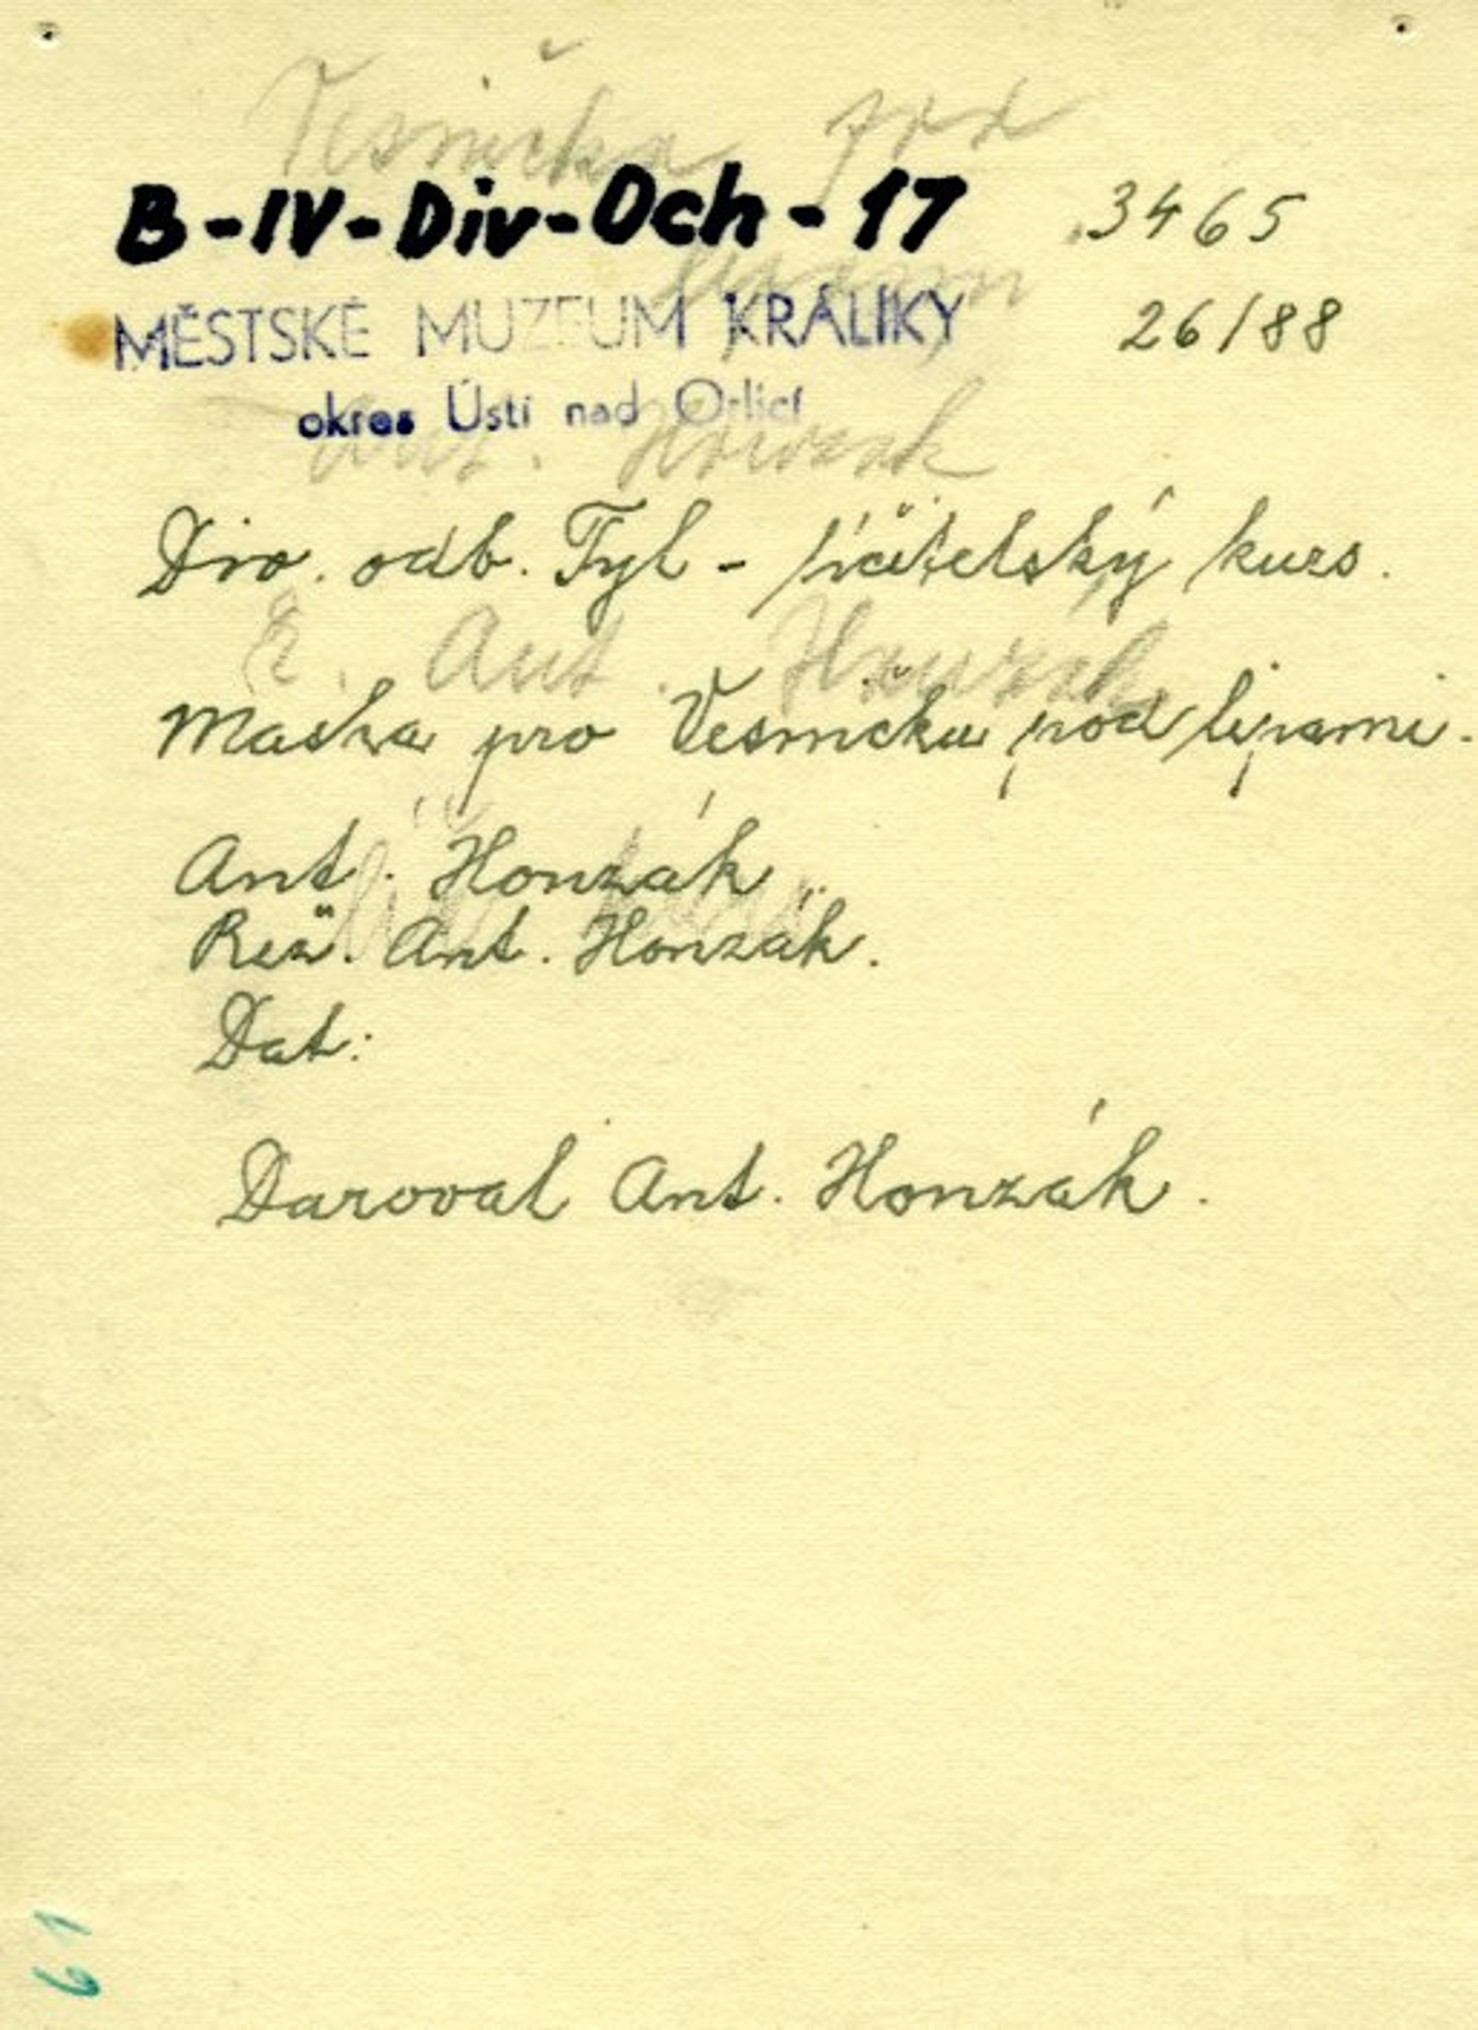 Vesnička pod
B-IV-Div-Och-17 3465
MĚSTSKÉ MUZEUM KRÁLÍKY 26/88
okres Ústí nad Orlicí
Div. odb. Tyl - líčitelský kurs.
R. Ant. Honzák
Maska pro Vesničku pod lipami.
Ant. Honzák
Rež. Ant. Honzák.
Dat:
Daroval Ant. Honzák.
61